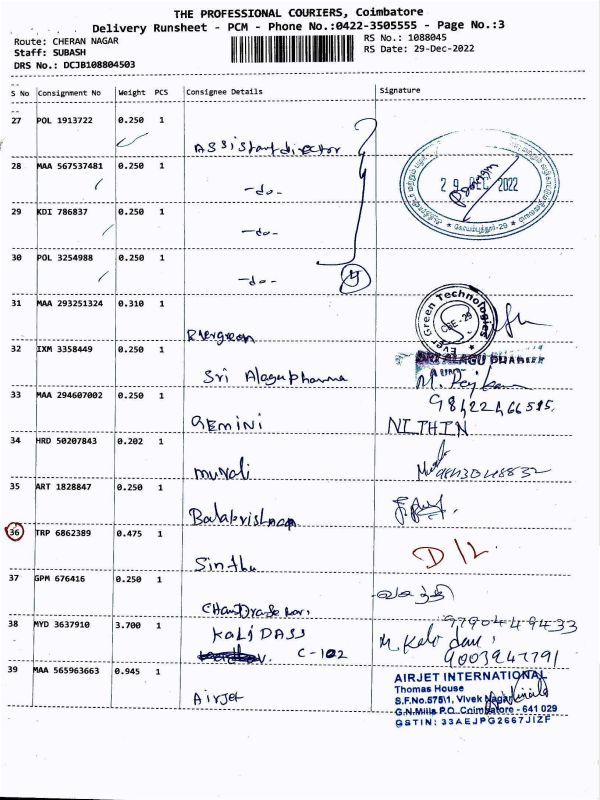 THE PROFESSIONAL COURIERS, Coimbatore
Delivery Runsheet - PCM - Phone No.:0422-3505555 - Page No.:3
Route: CHERAN NAGAR
Staff: SUBASH
DRS No.: DCJB108804503
RS No.: 1088045
RS Date: 29-Dec-2022
S No Consignment No Weight PCS Consignee Details Signature
27 POL 1913722 0.250 1
Assistant director
28 MAA 567537481 0.250 1
-do-
29 KDI 786837 0.250 1
-do-
30 POL 3254988 0.250 1
-do- 4
29 DEC 2022
31 MAA 293251324 0.310 1
Evergreen
Ever Green Technologies
CBE-29
32 IXM 3358449 0.250 1
Sri Alagupharma
SRI ALAGU PHARMA
33 MAA 294607002 0.250 1
GEMINI
NITHIN
34 HRD 50207843 0.202 1
Murali
35 ART 1828847 0.250 1
Balakrishnan
36 TRP 6862389 0.475 1
Sinthu
D/L
37 GPM 676416 0.250 1
Chandrasekar
வசந்தி
9790449433
38 MYD 3637910 3.700 1
KALIDASS
C-102
9003947791
39 MAA 565963663 0.945 1
Airjet
AIRJET INTERNATIONAL
Thomas House
S.F.No.575/1, Vivek Nagar
G.N.Mills P.O. Coimbatore - 641 029
GSTIN: 33AEJPG2667J1ZF